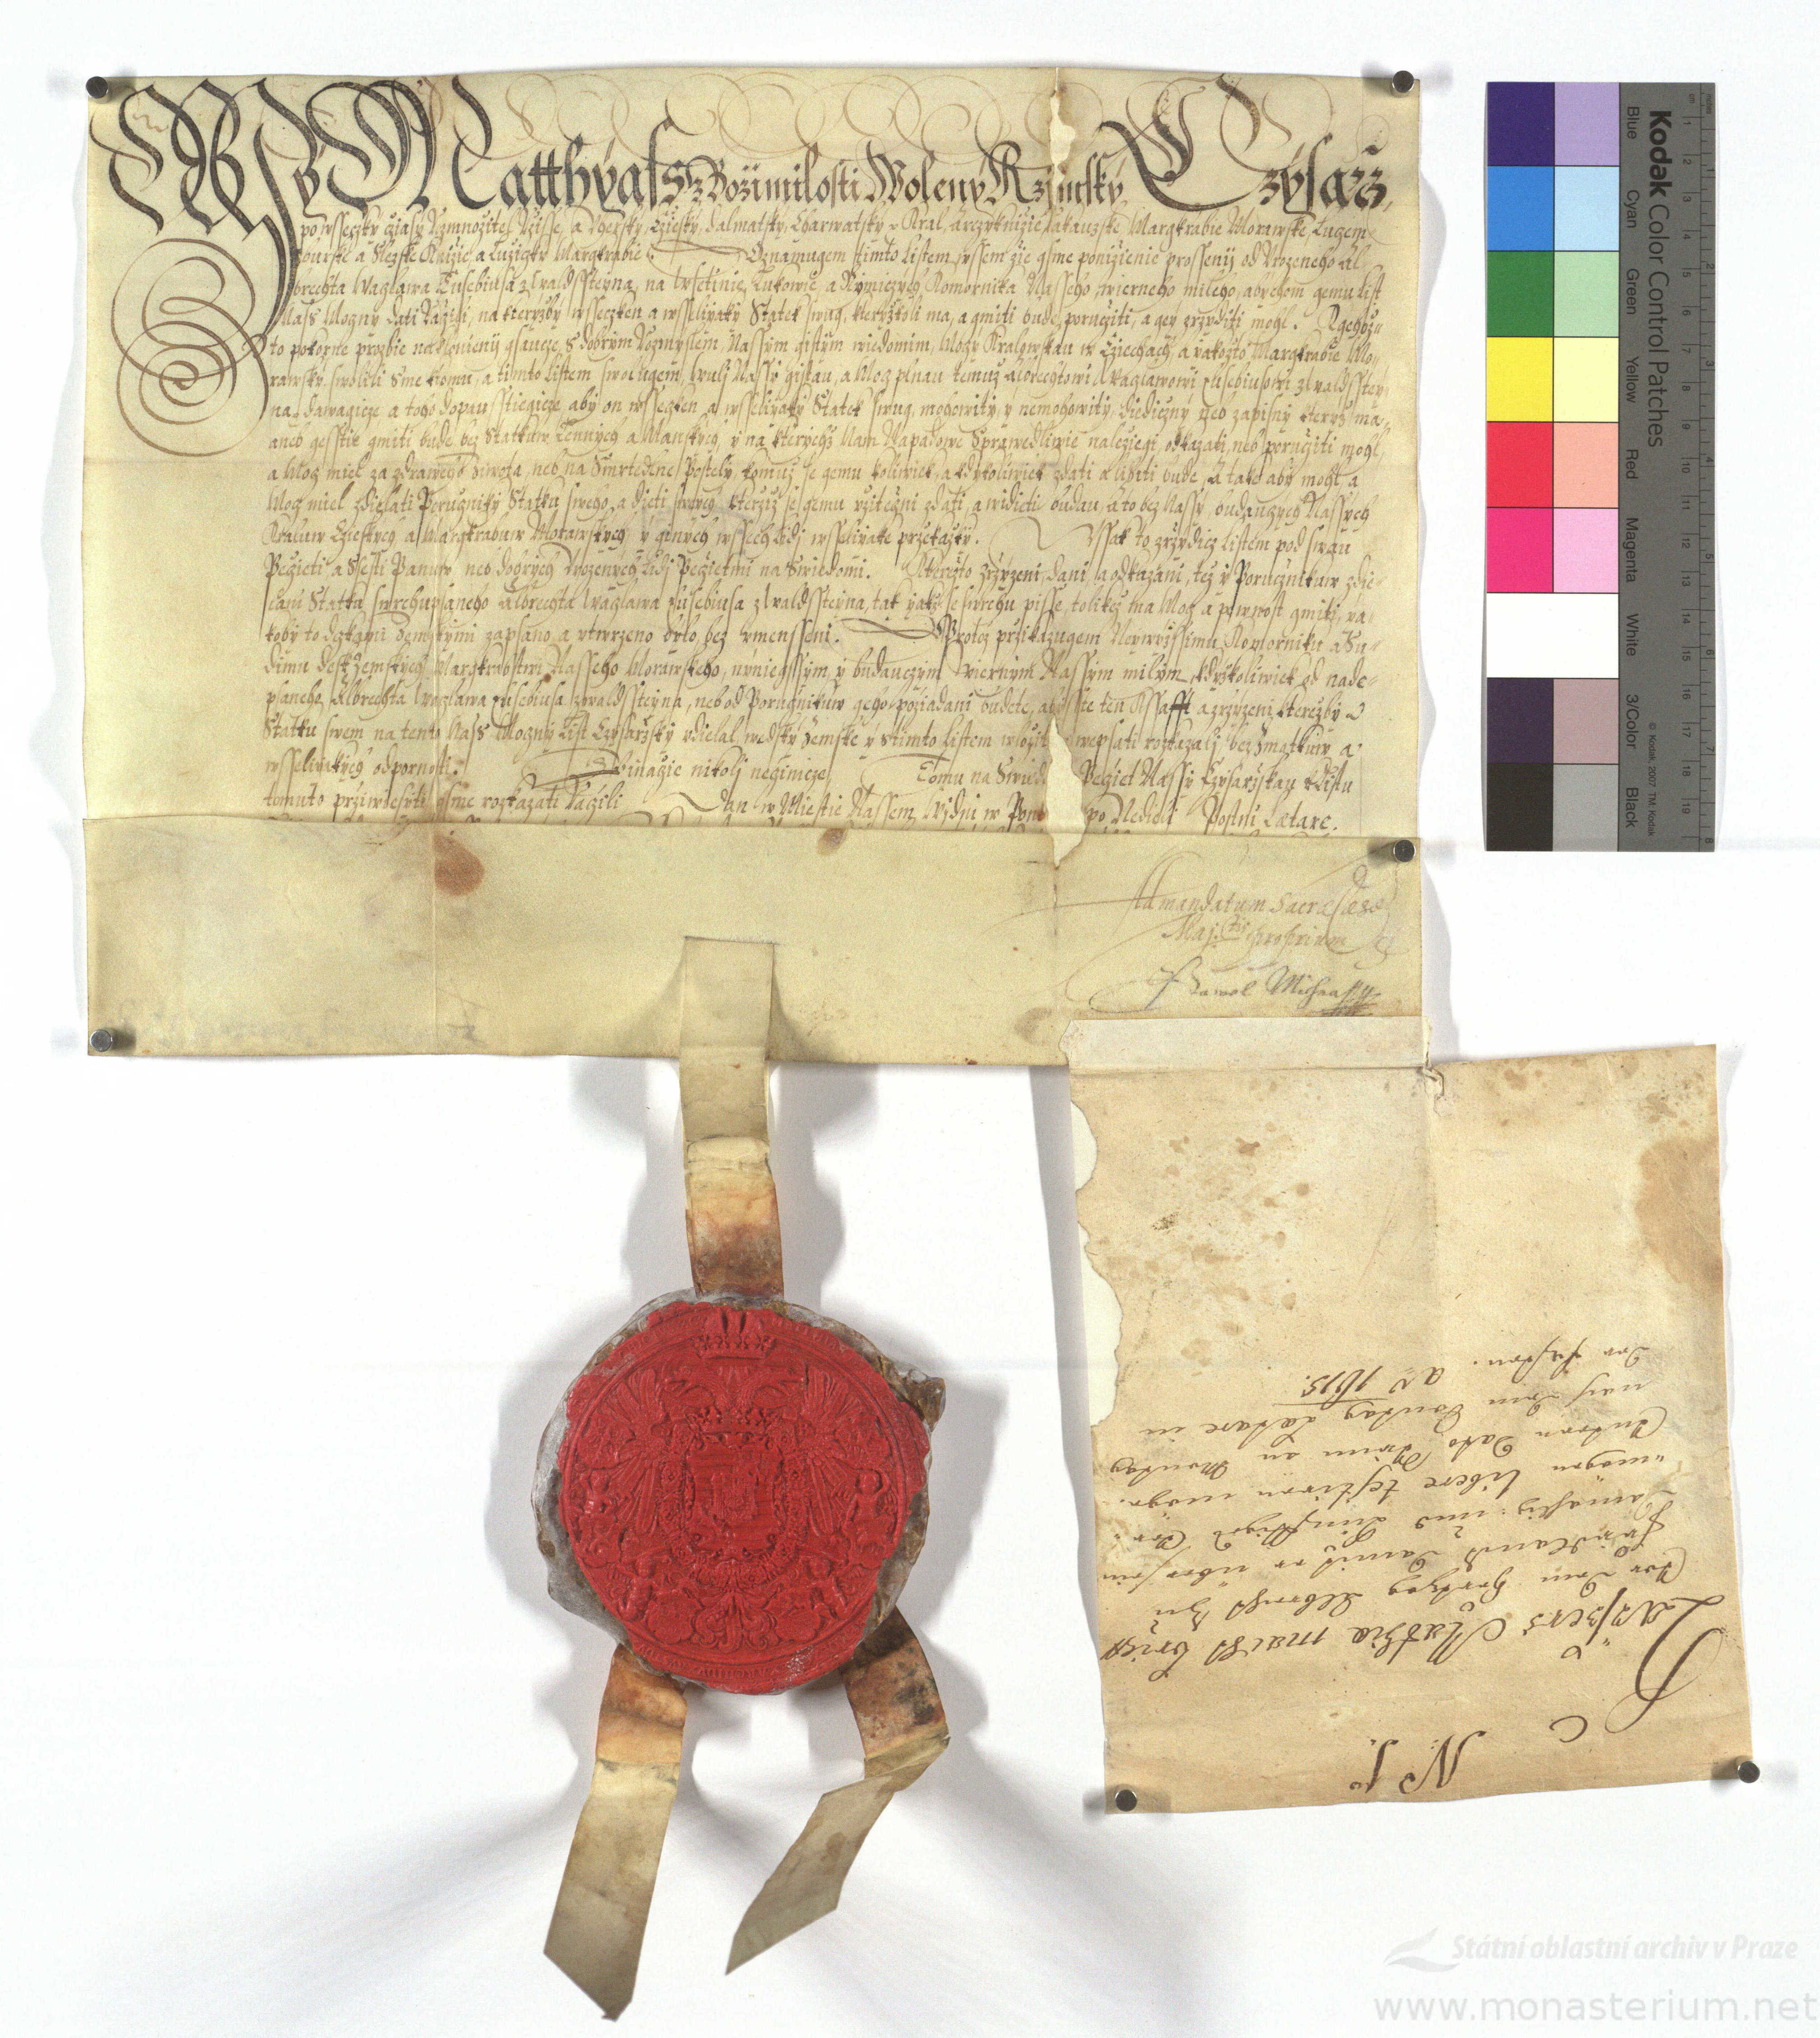 My Matthyass z Boží milosti Woleny Rzimský Czysarz,
po wsseczky cziasy Rozmnožitel Ržisse, a Uhersky, Cziesky, Dalmatsky, Charwatsky Kral, Arczyknižie Rakauzske Margkrabie Morawske, Lucem
burske a Slezske Knižie a Lužiczky Margkrabie. Oznamugem tiimto listem wssem zie gsme ponižienie prosseny od Urozeneho Al
brechta Waczlawa Eusebiusa z Waldssteyna, na Wsetinie Lukowie, a Rymiczych Komornika Nasseho wierneho mileho, abychom gemu list
Nass Moczny dati racžili, na kteryžby wsseczken a wsseliyaky Statek swug, kteryžkoli ma, a gmiti bude, poruczžiti, a gey zržiditi mohl. Kgegižu
to pokorne prozbie naklonieny gsaucze, s dobrym rozmyslem, Nassym gistym wiedomim, Moczy Kralowskau w Cziechach, a yakožto Margkrabie Mo-
rawsky, swolili sme k tomu, a timto listem swolugem, wuli Nassy gistau, a Mocz plnau temuž Albrechtowi Waczlawowi Eusebiusowi z Waldsstey
na, dawagicze a toho dopausstiegicze aby on wsseczken a wsseliyaky Statek swug, mohowity, y nemohowity, diediczny neb zapisny kteryž ma,
aneb gesstie gmiti bude, bez Statkuw Lennych a Manskych, y na kterychž Nam Napadowe Sprawedliwie naležiegi odkazati, neb porucžiti mohl,
a Mocz miel za zdraweho života, neb na Smrtedlne Posteli, komuž se gemu koliwiek, a kdyžkoliwiek zdati a libiti bude, A take aby mohl, a
Mocz miel zdielati Porucžniky Statku sweho, a dieti swych kteržiž se gemu užitecžni zdati, a widieti budau, a to bez Nassy, budauczych Nassych
Kraluw Cžeskych a Margkrabuw Morawskych y ginych wssech lidi wsseliyake przekažky. Wssak to zržidicz listem pod swau
Pecžieti, a Ssesti Panuw neb dobrych urozenych lidi Pecžietmi na Swiedomi. Kterežto zržizeni, dani, a odkazani, tež y Porucžnikuw zdie-
lani Statku, swrchupsaneho Albrechta Waczlawa Eusebiusa z Waldssteyna, tak yakž se swrchu pisse, tolikež ma Mocz a pewnost gmiti, ya-
koby to dczkami Zemskymi zapsano, a utwrzeno bylo, bez umensseni. Protož przikazugem Neywyžssimu Komorniku a Su-
dimu desk Zemskych Margkrabstwi Nasseho Morawskeho, nyniegssym, y budauczym Wiernym Nassym milym, kdyžkoliwiek od nade-
psaneho Albrechta Waczlawa Eusebiusa z Waldssteyna, neb od Porucžnikuw geho požiadani budete, abysste ten Kssafft a zržizeni, kterežby o
Statku swem na tento Nass Moczny List Czysarzsky udielal, we dsky Zemske y s timto listem wložit wepsati rozkazali bez zmatkuw a
wsseliyakych odpornosti. Ginacze nikoli neginicze, Tomu na Swied Pecžiet Nassy Czysarzskau k Listu
tomuto prziwiesyti gsme rozkazati racžili Dan w Miestie Nassem Widni w Pon po Nedieli Postni Lætare.
Ad mandatum Sacræ Cæs
Maj.tis proprium
Pawel Michna
No 1.
C
Kaÿsers Matthia macht brieff
Vor dem Hertzog Albrecht zu
Fridlandt, damit er uber sein
damahlig: und künfftiges Ver-
mögen libere testiren möge.
Unterm Dato Wien am Montag
nach dem Sontag Lætare in
der fasten. Ao 1615.
Kodak Color Control Patches
Blue Cyan Green Yellow Red Magenta White 3/Color Black
© Kodak, 2007 TM: Kodak
Státní oblastní archiv v Praze
www.monasterium.net